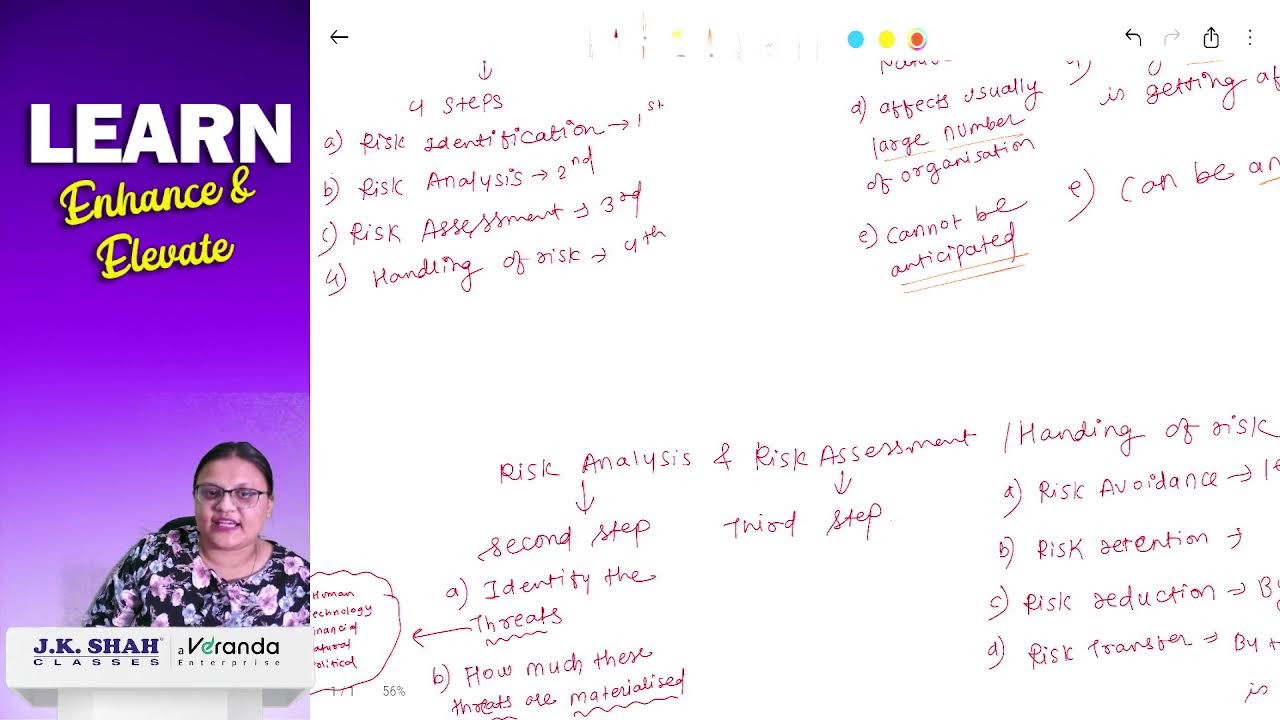 LEARN
Enhance &
Elevate
J.K. SHAH
CLASSES
a Veranda
Enterprise
4 Steps
a) Risk Identification → 1st
b) Risk Analysis → 2nd
c) Risk Assessment → 3rd
4) Handling of risk → 4th
d) affects usually
large number
of organisation
e) cannot be
anticipated
is getting
e) can be
Risk Analysis & Risk Assessment / Handing of risk
second step
Third step
a) Identify the
Threats
b) How much these
threats are materialised
Human
echnology
inancial
atural
olitical
1 / 1 56%
a) Risk Avoidance →
b) Risk retention →
c) Risk reduction → By
d) Risk Transfer → By
is